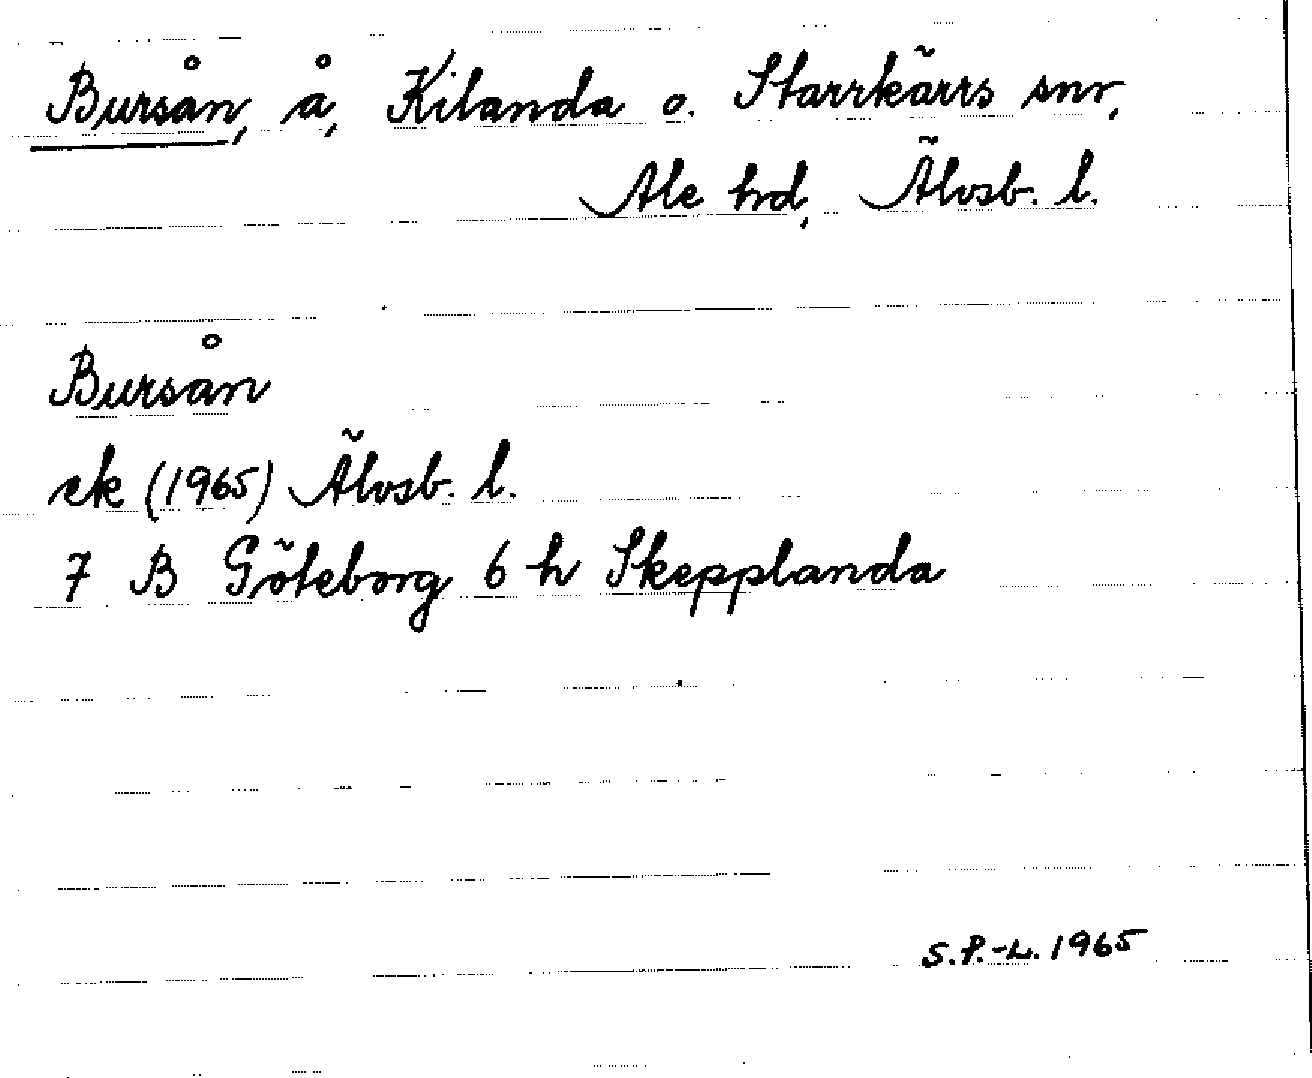 Bursån, å, Kilanda o. Starrkärrs snr,
Ale hd, Älvsb. l.
Bursån
ek (1965) Älvsb. l.
7 B Göteborg 6 h Skepplanda
S.P.-L. 1965